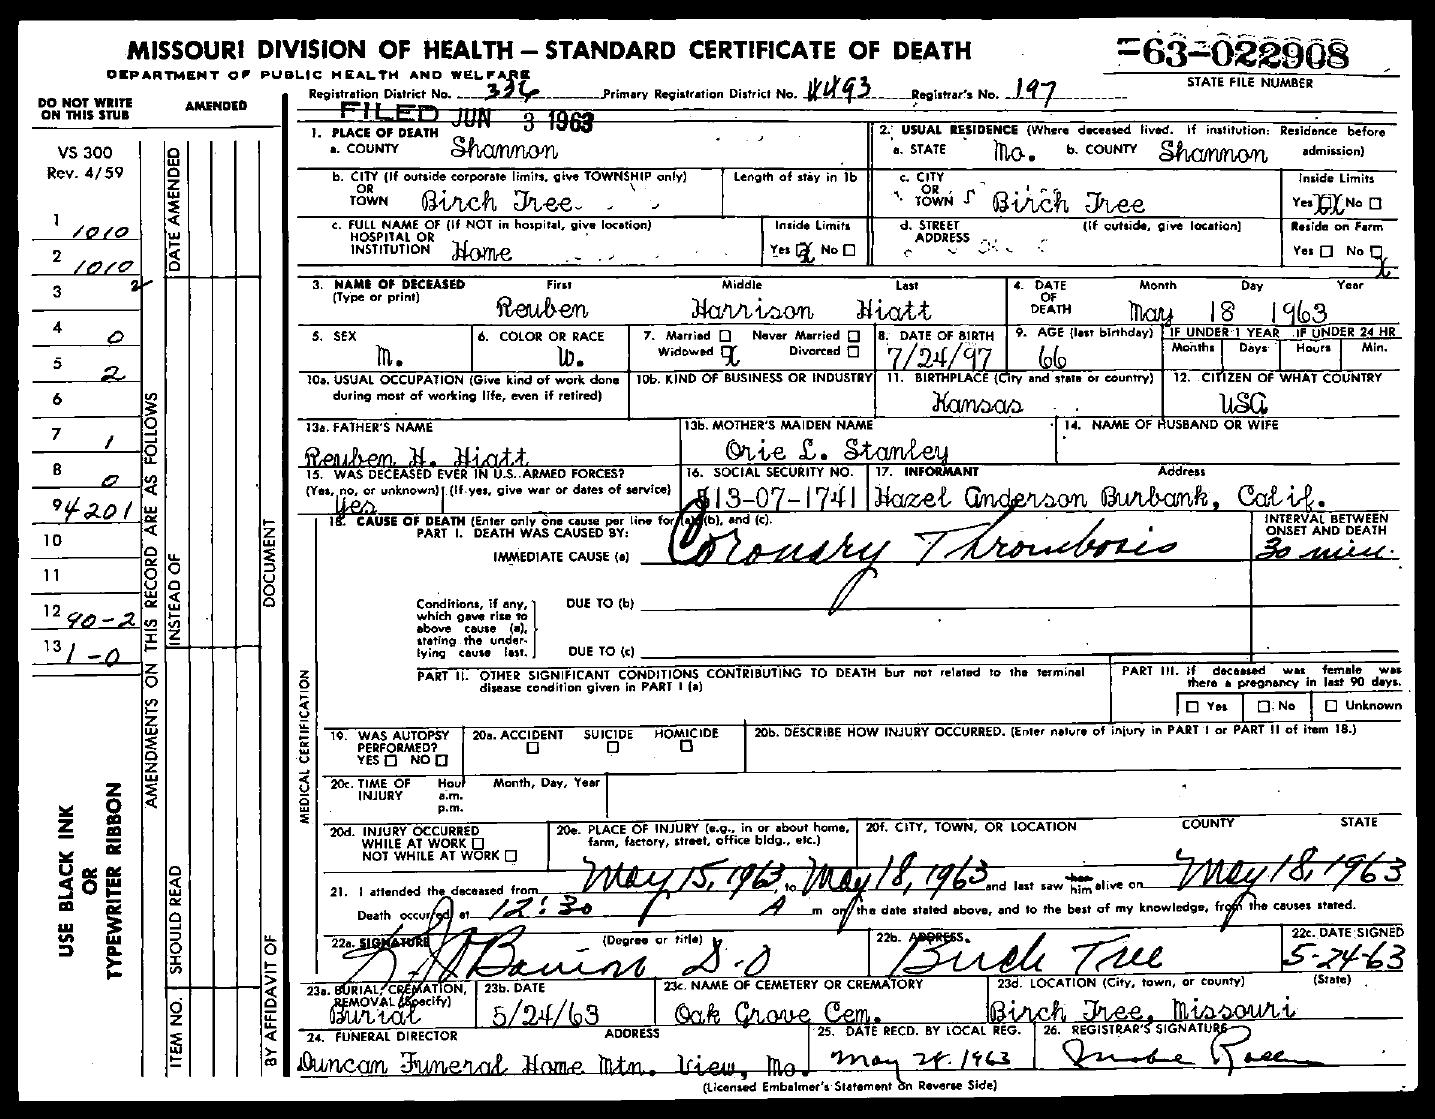 MISSOURI DIVISION OF HEALTH — STANDARD CERTIFICATE OF DEATH
-63-022908
DEPARTMENT OF PUBLIC HEALTH AND WELFARE
STATE FILE NUMBER
Registration District No. 336 Primary Registration District No. 4493 Registrar's No. 197
DO NOT WRITE ON THIS STUB
AMENDED
FILED JUN 3 1963
VS 300
Rev. 4/59
1 1010
2 1010
3 2
4 0
5 2
6
7 1
8 0
9 4201
10
11
12 90-2
13 1-0
USE BLACK INK
OR
TYPEWRITER RIBBON
AMENDMENTS ON THIS RECORD ARE AS FOLLOWS
DATE AMENDED
INSTEAD OF
SHOULD READ
ITEM NO.
DOCUMENT
BY AFFIDAVIT OF
MEDICAL CERTIFICATION
1. PLACE OF DEATH
a. COUNTY Shannon
2. USUAL RESIDENCE (Where deceased lived. If institution: Residence before admission)
a. STATE Mo. b. COUNTY Shannon
b. CITY (If outside corporate limits, give TOWNSHIP only) OR TOWN Birch Tree
Length of stay in 1b
c. CITY OR TOWN Birch Tree
Inside Limits
Yes X No
c. FULL NAME OF (If NOT in hospital, give location) HOSPITAL OR INSTITUTION Home
Inside Limits
Yes X No
d. STREET ADDRESS (If outside, give location)
Reside on Farm
Yes No X
3. NAME OF DECEASED (Type or print)
First Middle Last
Reuben Harrison Hiatt
4. DATE OF DEATH Month Day Year
May 18 1963
5. SEX
M.
6. COLOR OR RACE
W.
7. Married Never Married
Widowed X Divorced
8. DATE OF BIRTH
7/24/97
9. AGE (last birthday)
66
IF UNDER 1 YEAR IF UNDER 24 HR
Months Days Hours Min.
10a. USUAL OCCUPATION (Give kind of work done during most of working life, even if retired)
10b. KIND OF BUSINESS OR INDUSTRY
11. BIRTHPLACE (City and state or country)
Kansas
12. CITIZEN OF WHAT COUNTRY
USA
13a. FATHER'S NAME
Reuben H. Hiatt
13b. MOTHER'S MAIDEN NAME
Orie L. Stanley
14. NAME OF HUSBAND OR WIFE
15. WAS DECEASED EVER IN U.S. ARMED FORCES?
(Yes, no, or unknown) (If yes, give war or dates of service)
Yes
16. SOCIAL SECURITY NO.
513-07-1741
17. INFORMANT Address
Hazel Anderson Burbank, Calif.
18. CAUSE OF DEATH (Enter only one cause per line for (a), (b), and (c).
PART I. DEATH WAS CAUSED BY:
IMMEDIATE CAUSE (a) Coronary Thrombosis
INTERVAL BETWEEN ONSET AND DEATH
30 min.
Conditions, if any, which gave rise to above cause (a), stating the underlying cause last.
DUE TO (b)
DUE TO (c)
PART II. OTHER SIGNIFICANT CONDITIONS CONTRIBUTING TO DEATH but not related to the terminal disease condition given in PART I (a)
PART III. If deceased was female was there a pregnancy in last 90 days.
Yes No Unknown
19. WAS AUTOPSY PERFORMED?
YES NO
20a. ACCIDENT SUICIDE HOMICIDE
20b. DESCRIBE HOW INJURY OCCURRED. (Enter nature of injury in PART I or PART II of item 18.)
20c. TIME OF INJURY Hour a.m. p.m. Month, Day, Year
20d. INJURY OCCURRED
WHILE AT WORK
NOT WHILE AT WORK
20e. PLACE OF INJURY (e.g., in or about home, farm, factory, street, office bldg., etc.)
20f. CITY, TOWN, OR LOCATION COUNTY STATE
21. I attended the deceased from May 15, 1963, to May 18, 1963 and last saw him alive on May 18, 1963
Death occurred at 12:30 A m on the date stated above, and to the best of my knowledge, from the causes stated.
22a. SIGNATURE (Degree or title)
D.O
22b. ADDRESS.
Birch Tree
22c. DATE SIGNED
5-24-63
23a. BURIAL, CREMATION, REMOVAL (Specify)
Burial
23b. DATE
5/24/63
23c. NAME OF CEMETERY OR CREMATORY
Oak Grove Cem.
23d. LOCATION (City, town, or county) (State)
Birch Tree, Missouri
24. FUNERAL DIRECTOR ADDRESS
Duncan Funeral Home Mtn. View, Mo.
25. DATE RECD. BY LOCAL REG.
May 24. 1963
26. REGISTRAR'S SIGNATURE
(Licensed Embalmer's Statement on Reverse Side)